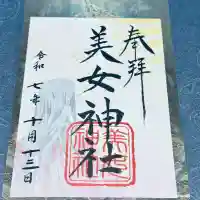 奉拝
美女神社
令和七年十月十三日